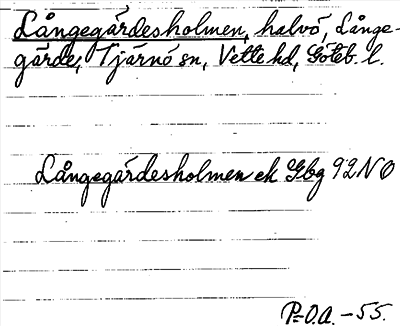 Långegärdesholmen, halvö, Långe-
gärde, Tjärnö sn, Vette hd, Göteb. l.
Långegärdesholmen ek Gbg 92 NO
P-O.A. -55.